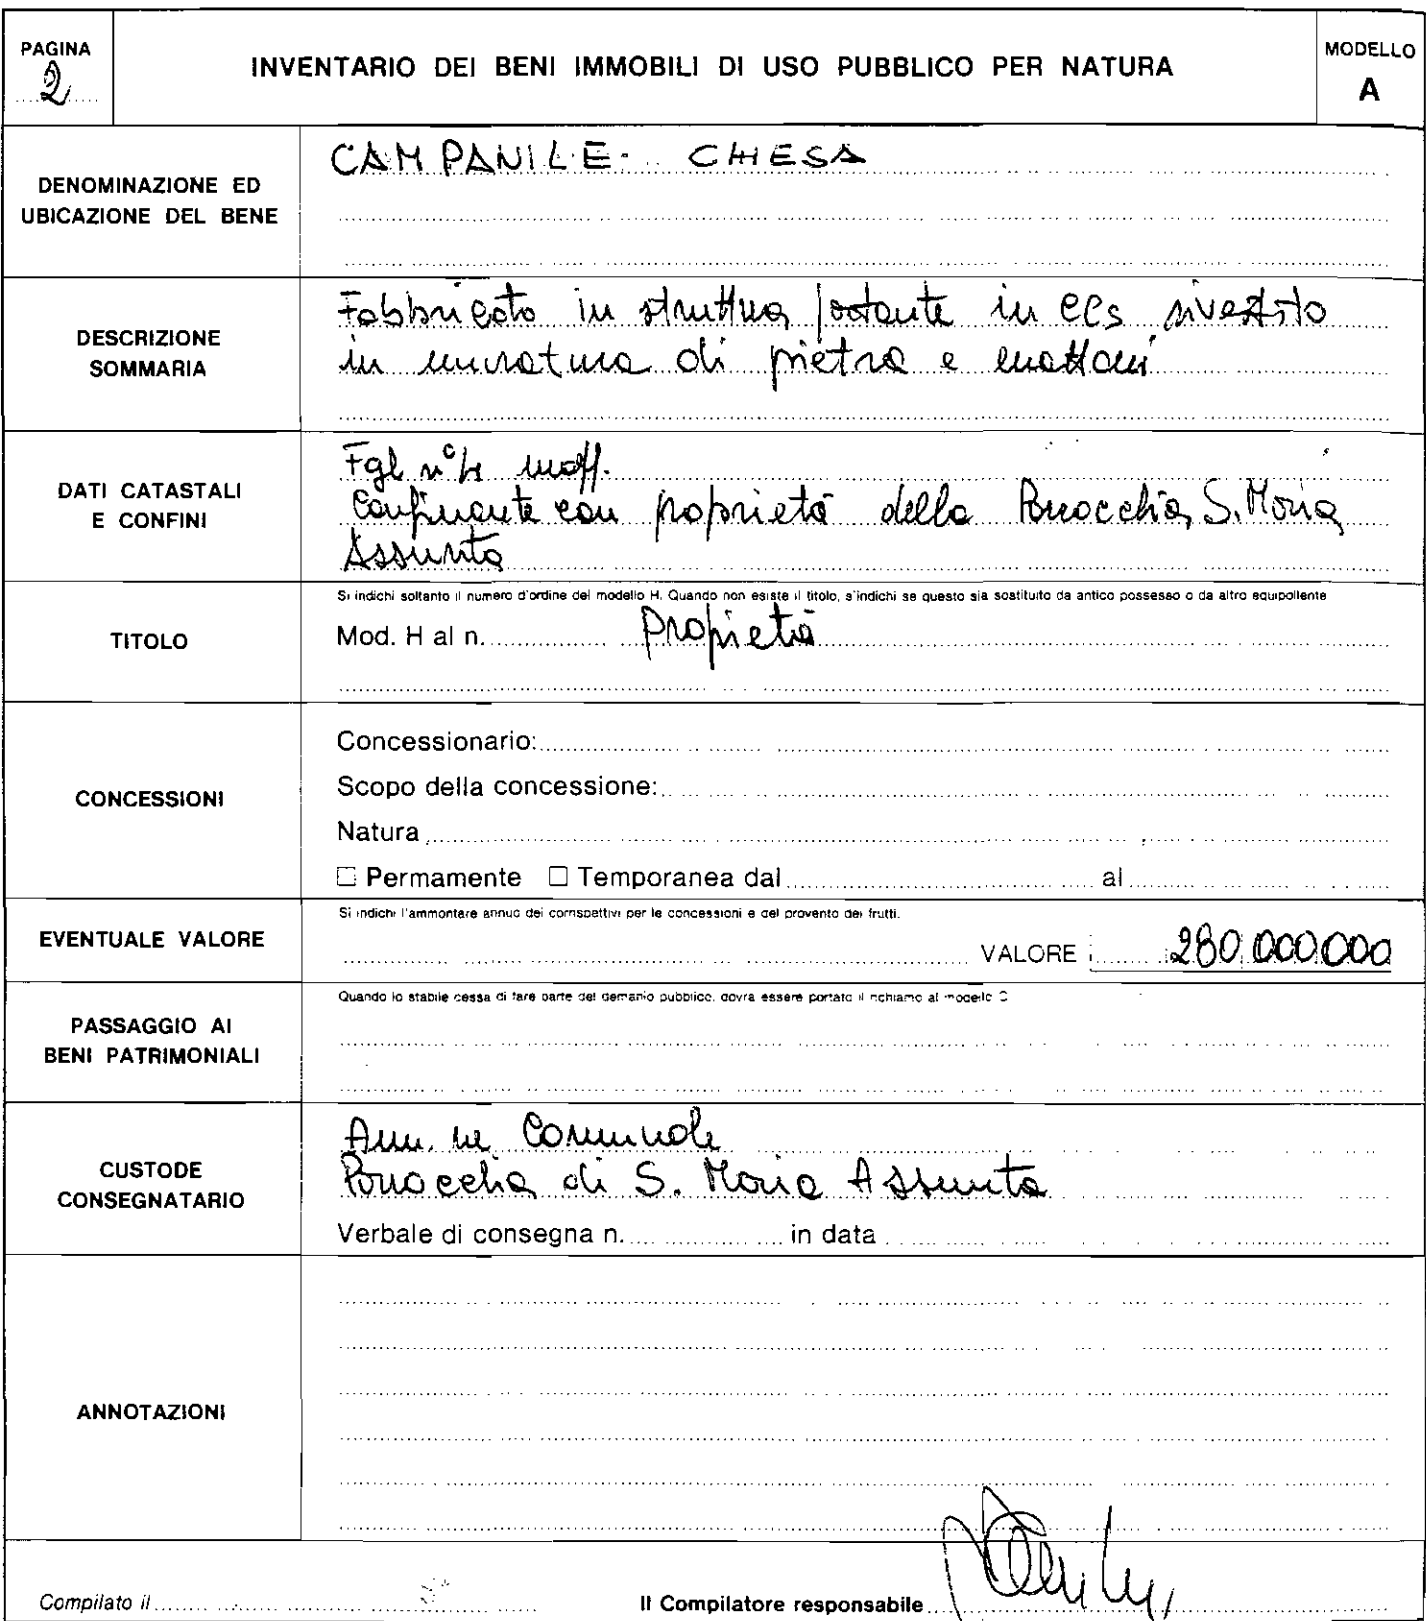 PAGINA
2
INVENTARIO DEI BENI IMMOBILI DI USO PUBBLICO PER NATURA
MODELLO
A
DENOMINAZIONE ED
UBICAZIONE DEL BENE
CAMPANILE CHIESA
DESCRIZIONE
SOMMARIA
Fabbricato in struttura portante in ccs rivestito
in muratura di pietra e mattoni
DATI CATASTALI
E CONFINI
Fgl n°
Confinante con proprietà della Parrocchia S. Maria
Assunta
TITOLO
Si indichi soltanto il numero d'ordine del modello H. Quando non esiste il titolo, s'indichi se questo sia sostituito da antico possesso o da altro equipollente
Mod. H al n. Proprietà
CONCESSIONI
Concessionario:
Scopo della concessione:
Natura
☐ Permamente ☐ Temporanea dal al
EVENTUALE VALORE
Si indichi l'ammontare annuo dei corrispettivi per le concessioni e del provento dei frutti.
VALORE 280.000.000
PASSAGGIO AI
BENI PATRIMONIALI
Quando lo stabile cessa di fare parte del demanio pubblico, dovrà essere portato il richiamo al modello C
CUSTODE
CONSEGNATARIO
Amm.ne Comunale
Parrocchia di S. Maria Assunta
Verbale di consegna n. in data
ANNOTAZIONI
Compilato il
Il Compilatore responsabile